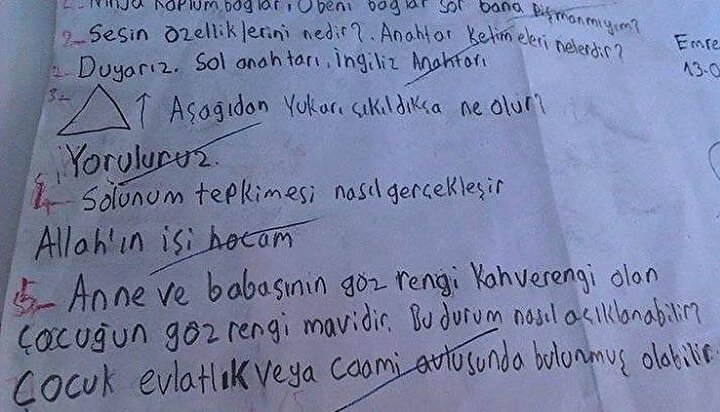 Ninja Kaplumbağlar, O beni bağlar sor bana pişmanmıyım?
2- Sesin özelliklerini nedir? Anahtar Kelimeleri nelerdir?
2- Duyarız. Sol anahtarı, İngiliz Anahtarı
3- ↑ Aşağıdan Yukarı çıkıldıkça ne olur?
Yoruluruz.
4- Solunum tepkimesi nasıl gerçekleşir
Allah'ın işi hocam
5- Anne ve babasının göz rengi Kahverengi olan
Çocuğun göz rengi mavidir. Bu durum nasıl açıklanabilir?
Çocuk evlatlık veya Caami avlusunda bulunmuş olabilir.
Emre
13-0